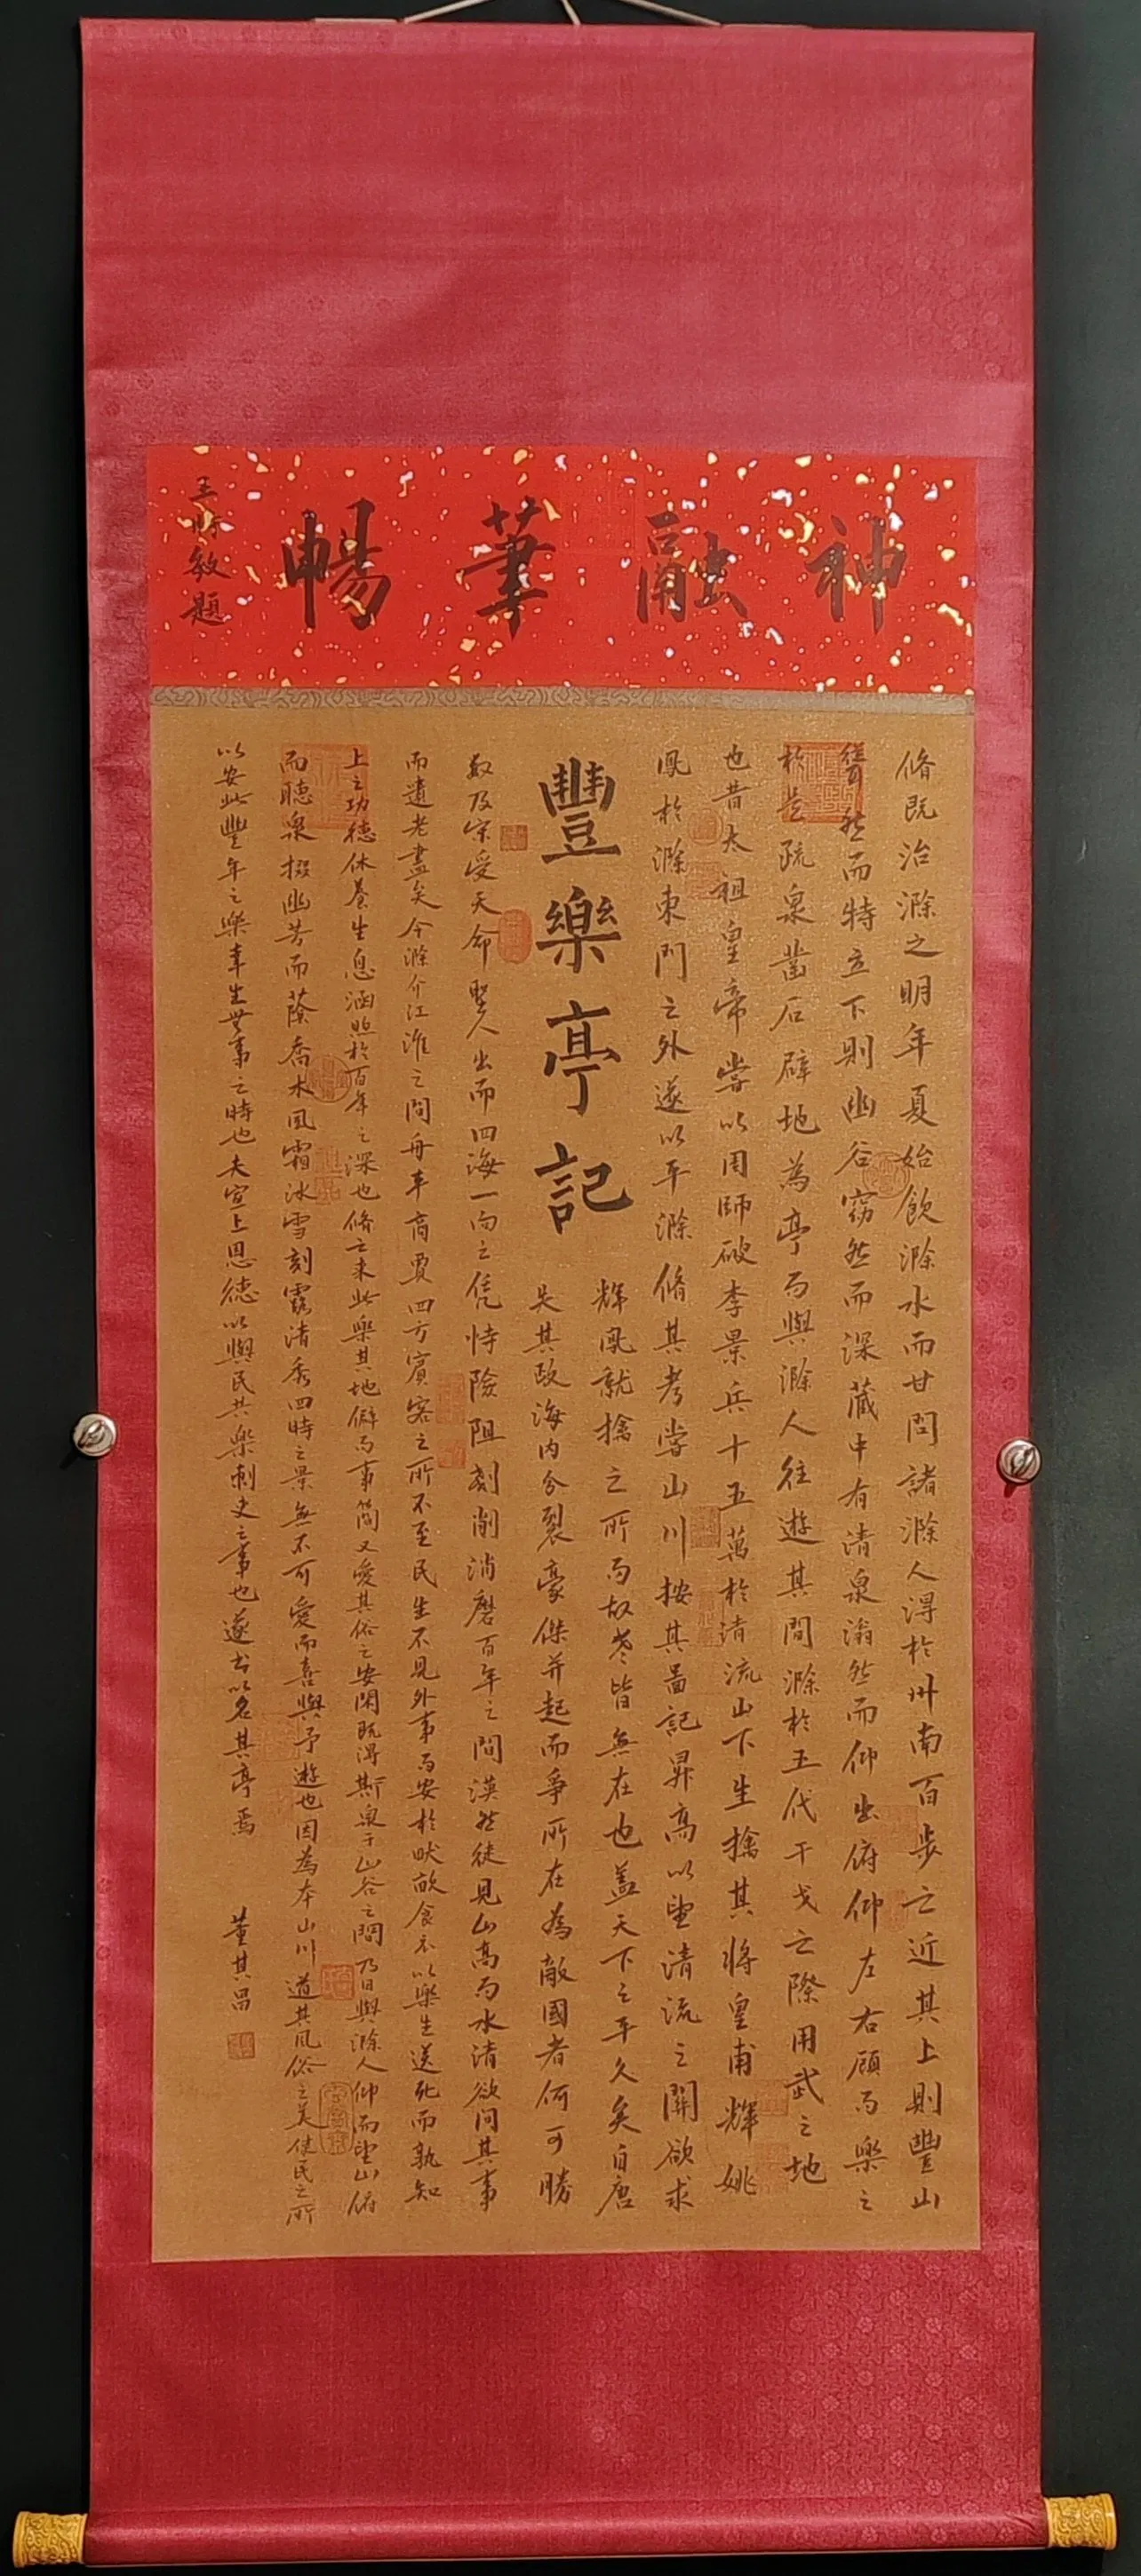 神融筆暢
王時敏題
脩既治滁之明年夏始飲滁水而甘問諸滁人得於州南百步之近其上則豐山
聳然而特立下則幽谷窈然而深藏中有清泉滃然而仰出俯仰左右顧而樂之
於是疏泉鑿石辟地為亭而與滁人往遊其間滁於五代干戈之際用武之地
也昔太祖皇帝嘗以周師破李景兵十五萬於清流山下生擒其將皇甫輝姚
鳳於滁東門之外遂以平滁脩其考嘗山川按其圖記昇高以望清流之關欲求
豐樂亭記
輝鳳就擒之所而故老皆無在也蓋天下之平久矣自唐
失其政海內分裂豪傑并起而爭所在為敵國者何可勝
數及宋受天命聖人出而四海一向之凭恃險阻刻削消磨百年之間漠然徒見山高而水清欲問其事
而遺老盡矣今滁介江淮之間舟車商賈四方賓客之所不至民生不見外事而安於畎畝食衣以樂生送死而孰知
上之功德休養生息涵煦於百年之深也脩之来此樂其地僻而事簡又愛其俗之安閑既得斯泉于山谷之間乃日與滁人仰而望山俯
而聽泉掇幽芳而蔭喬木風霜冰雪刻露清秀四時之景無不可愛而喜與予遊也因為本山川道其風俗之美使民之所
以安此豐年之樂幸生無事之時也夫宣上恩德以與民共樂刺史之事也遂書以名其亭焉
董其昌